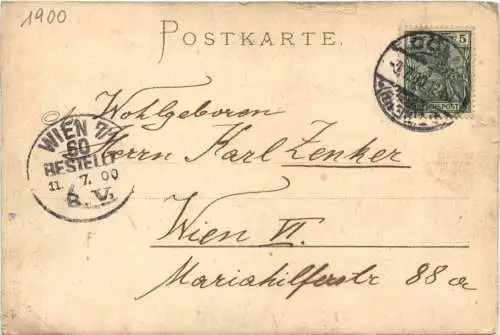 1900
POSTKARTE.
5
REICHSPOST
WIEN 7/1
60
BESTELLT
11. 7. 00
8. V.
Wohlgeboren
Herrn Karl Zenker
Wien VI.
Mariahilferstr 88 a